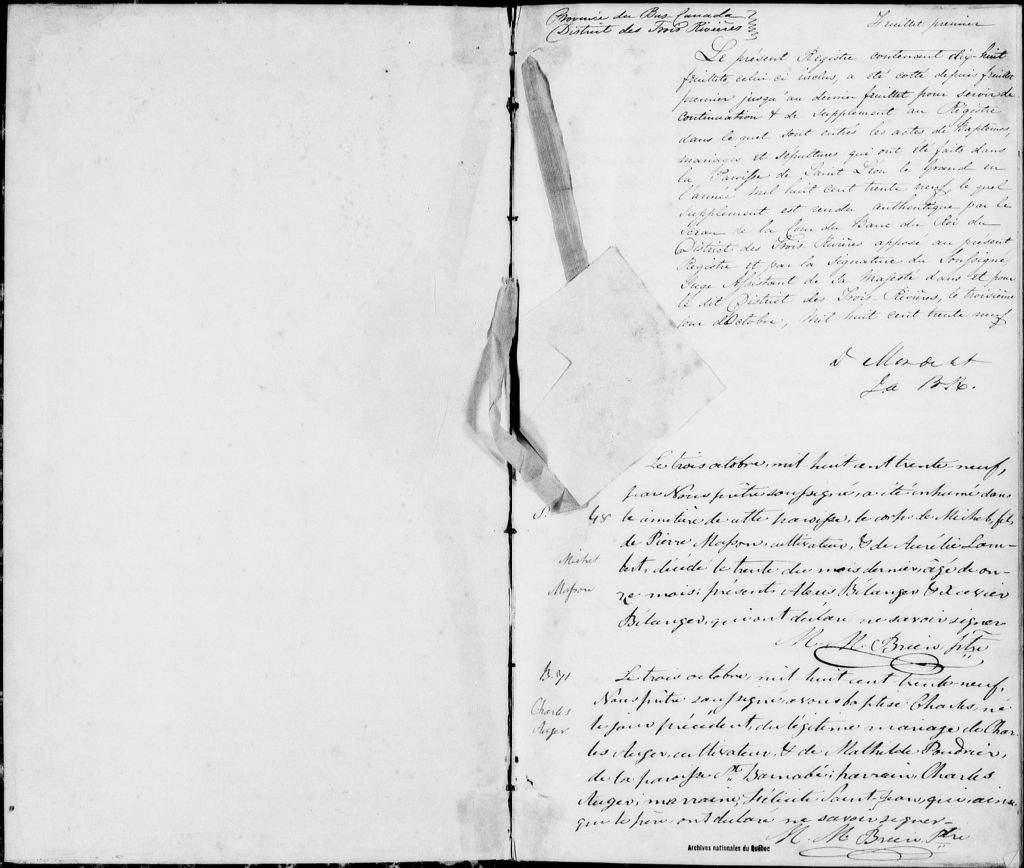 Province du Bas Canada
District des Trois Rivières
Feuillet premier
Le présent Registre contenant dix-huit
feuillets celui ci inclus, a été cotté depuis feuillet
premier jusqu'au dernier feuillet pour servir de
Continuation & de Supplement au Régistre
dans le quel sont entrés les actes de Baptèmes,
mariages et sépultures qui ont été faits dans
la Paroisse de Saint Léon le Grand en
l'année mil huit cent trente neuf le quel
Supplement est rendu authentique par le
Sceau de la Cour du Banc du Roi du
District des Trois Rivières apposé au présent
Registre et par la Signature du Soussigné
Juge Assistant de Sa Majesté dans et pour
le dit District des Trois Rivières, le troisième
jour d'Octobre, Mil huit cent trente neuf
D Mondelet
J.a B.R.
Le trois octobre, mil huit cent trente neuf,
par Nous prêtre soussigné, a été inhumé dans
S. 48 le cimetière de cette paroisse, le corps de Michel, fils
de Pierre Masson, cultivateur, & de Aurélie Lam-
Michel
bert, décédé le trente du mois dernier, âgé de on-
Masson
ze mois; présents Alexis Bélanger & Xavier
Bélanger, qui ont déclaré ne savoir signer
M. M. Brien ptre
B. 71
Le trois octobre, mil huit cent trente neuf,
Charles
Nous prêtre soussigné, avons baptisé Charles, né
Auger
le jour précédent, du légitime mariage de Char-
les Auger, cultivateur, & de Mathilde Poudrier,
de la paroisse St. Barnabé; parrain, Charles
Auger; marraine, Félicité Saint Jean, qui, ainsi
que le père ont déclaré ne savoir signer-
M. M. Brien Ptre
Archives nationales du Québec